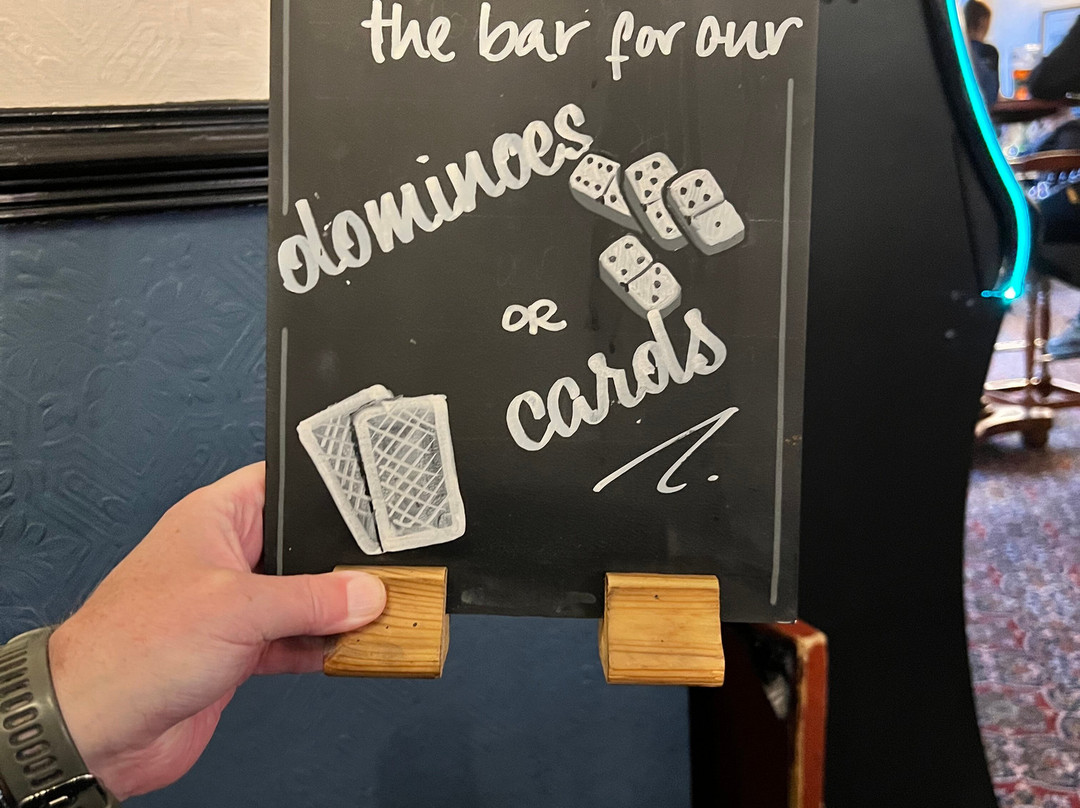 the bar for our
dominoes
OR
cards